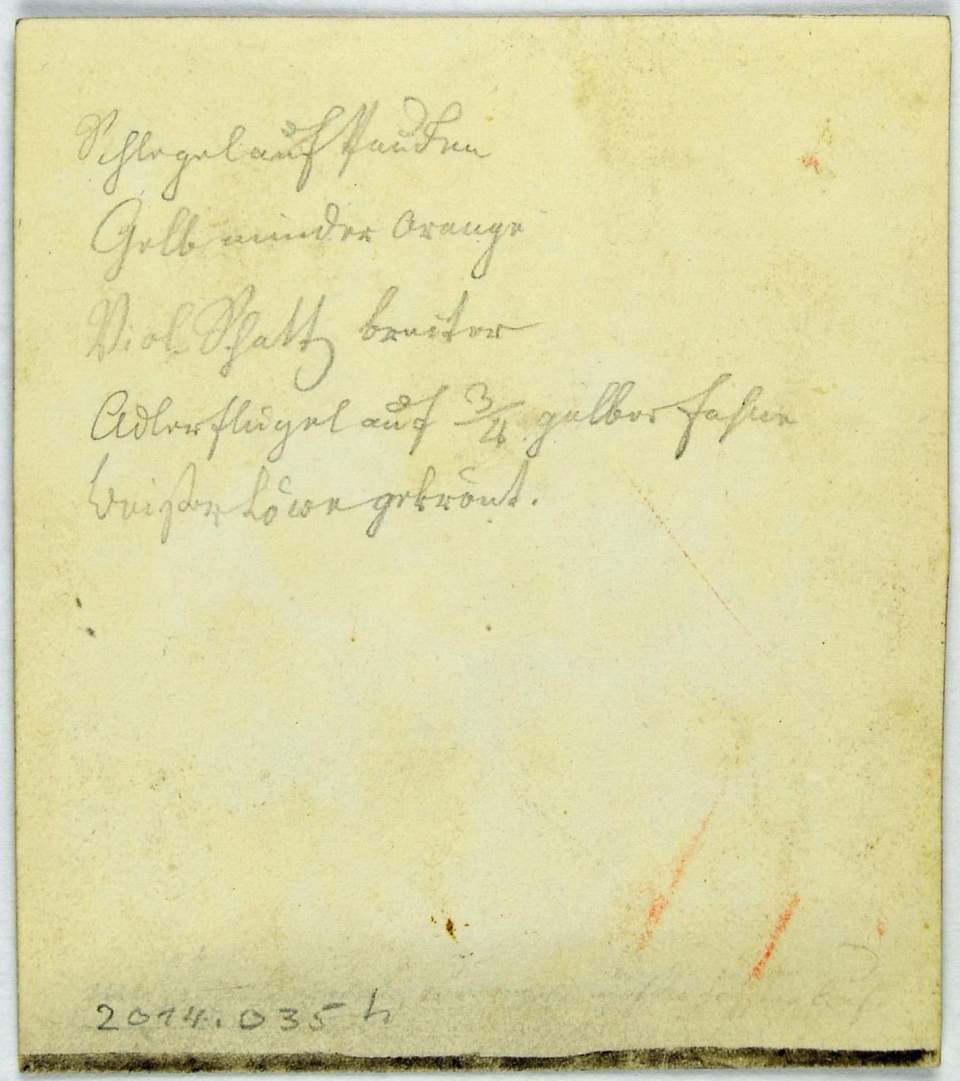 Schlegel auf Pauken
Gelb minder Orange
Viol. Schatt breiter
Adlerflügel auf 3/4 gelber Fahne
Weißer Löwe gekrönt.
2014.035 h